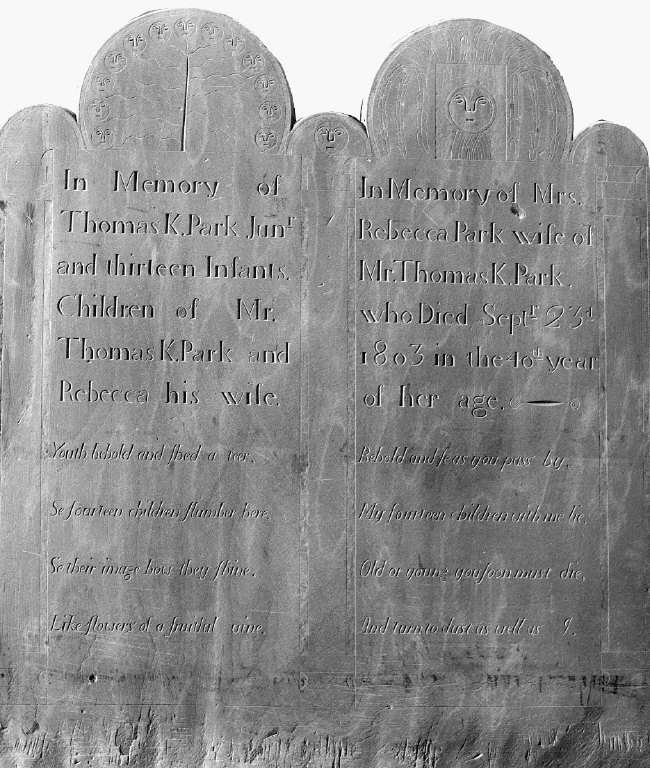 In Memory of
Thomas K. Park Junr
and thirteen Infants,
Children of Mr.
Thomas K. Park and
Rebecca his wife.
Youth behold and ſhed a teer,
Se fourteen children ſlumber here,
Se their image how they ſhine,
Like flowers of a fruitful vine.
In Memory of Mrs.
Rebecca Park wife of
Mr. Thomas K. Park.
who Died Septr 23d
1803 in the 40th year
of her age.
Behold and ſe as you paſs by,
My fourteen children with me lie,
Old or young you ſoon must die,
And turn to dust as well as I.